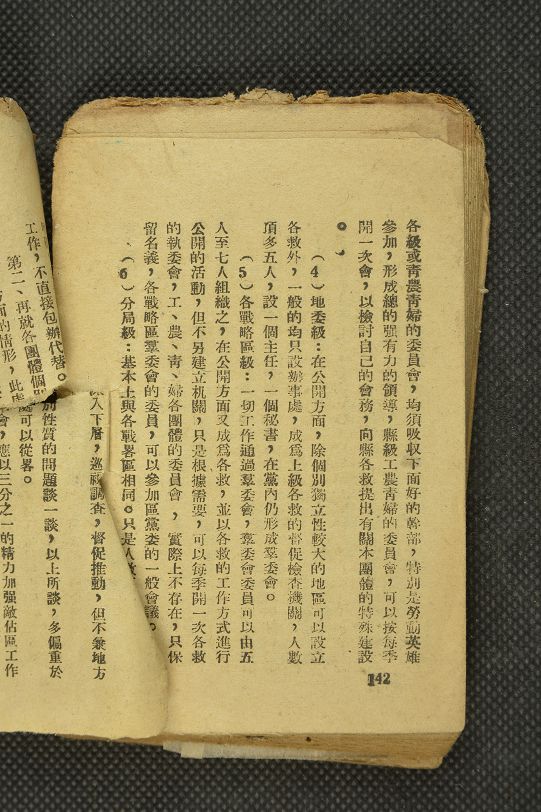 各級或靑農靑婦的委員會，均須吸收下面好的幹部，特別是勞動英雄
參加，形成總的强有力的領導，縣級工農靑婦的委員會，可以按每季
開一次會，以檢討自己的會務，向縣各救提出有關本團體的特殊建設
。
（4）地委級：在公開方面，除個別獨立性較大的地區可以設立
各救外，一般的均只設辦事處，成爲上級各救的督促檢查機關，人數
頂多五人，設一個主任，一個秘書，在黨內仍形成羣委會。
（5）各戰略區級：一切工作通過羣委會，羣委會委員可以由五
人至七人組織之，在公開方面又成爲各救，並以各救的工作方式進行
公開的活動，但不另建立机關，只是根據需要，可以每季開一次各救
的執委會，工、農、靑、婦各團體的委員會，實際上不存在，只保
留名義，各戰略區羣委會的委員，可以參加區黨委的一般會議。
（6）分局級：基本上與各戰署區相同。只是人數
深入下層，巡視調查，督促推動，但不象地方
工作，不直接包辦代替。
第二、再就各團體個別性質的問題談一談，以上所談，多偏重於
方面的情形，此處可以從畧。
會，應以三分之一的精力加强敵佔區工作
142